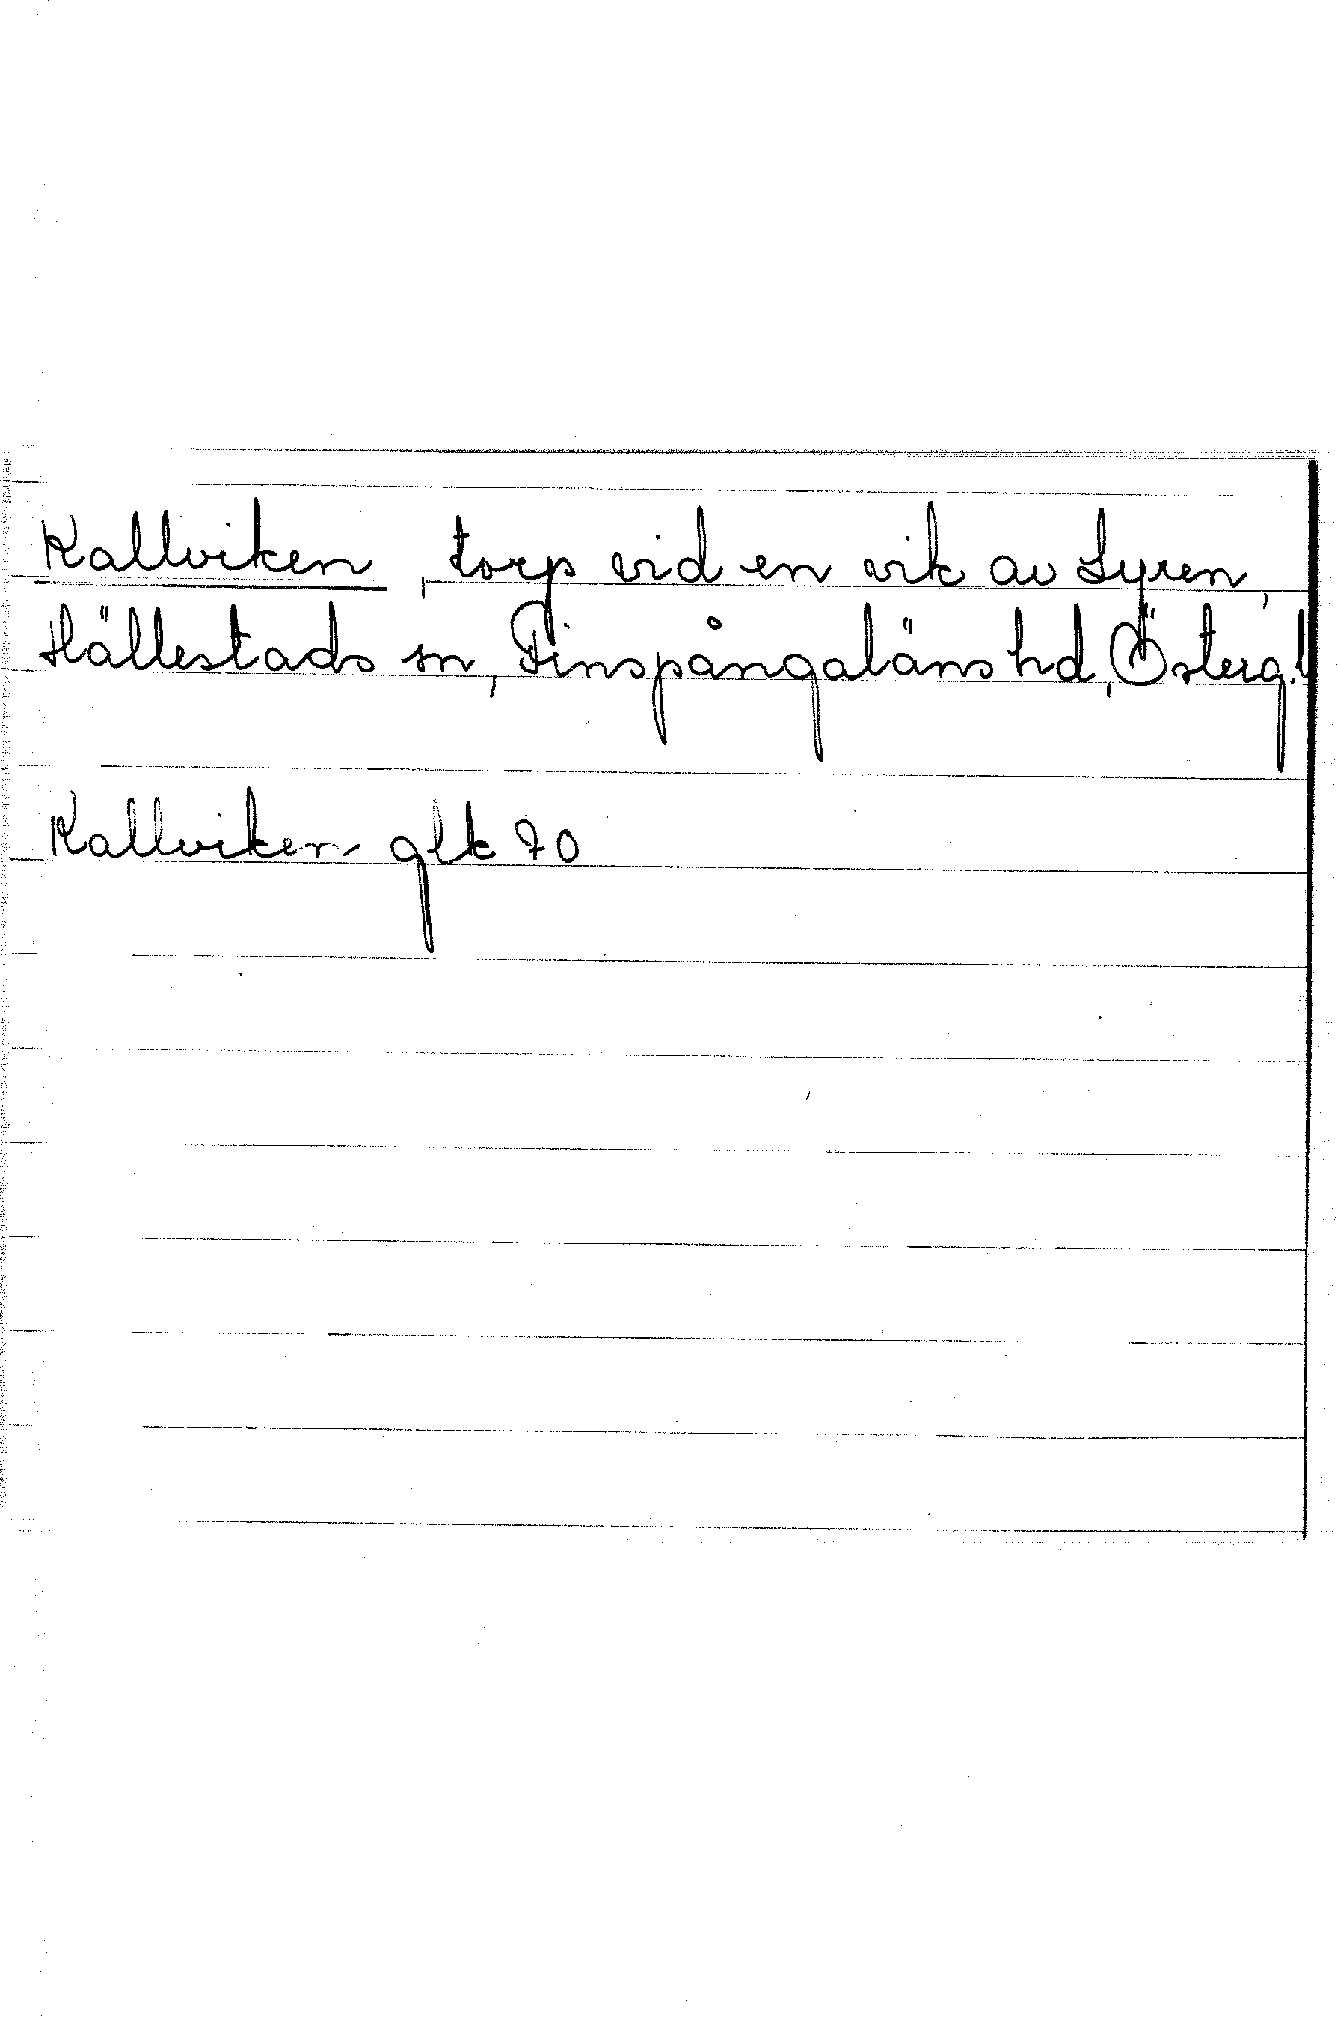 Kallviken, torp vid en vik av Lyren,
Hällestads sn, Finspångaläns hd, Österg.l
Kallviken glk 70